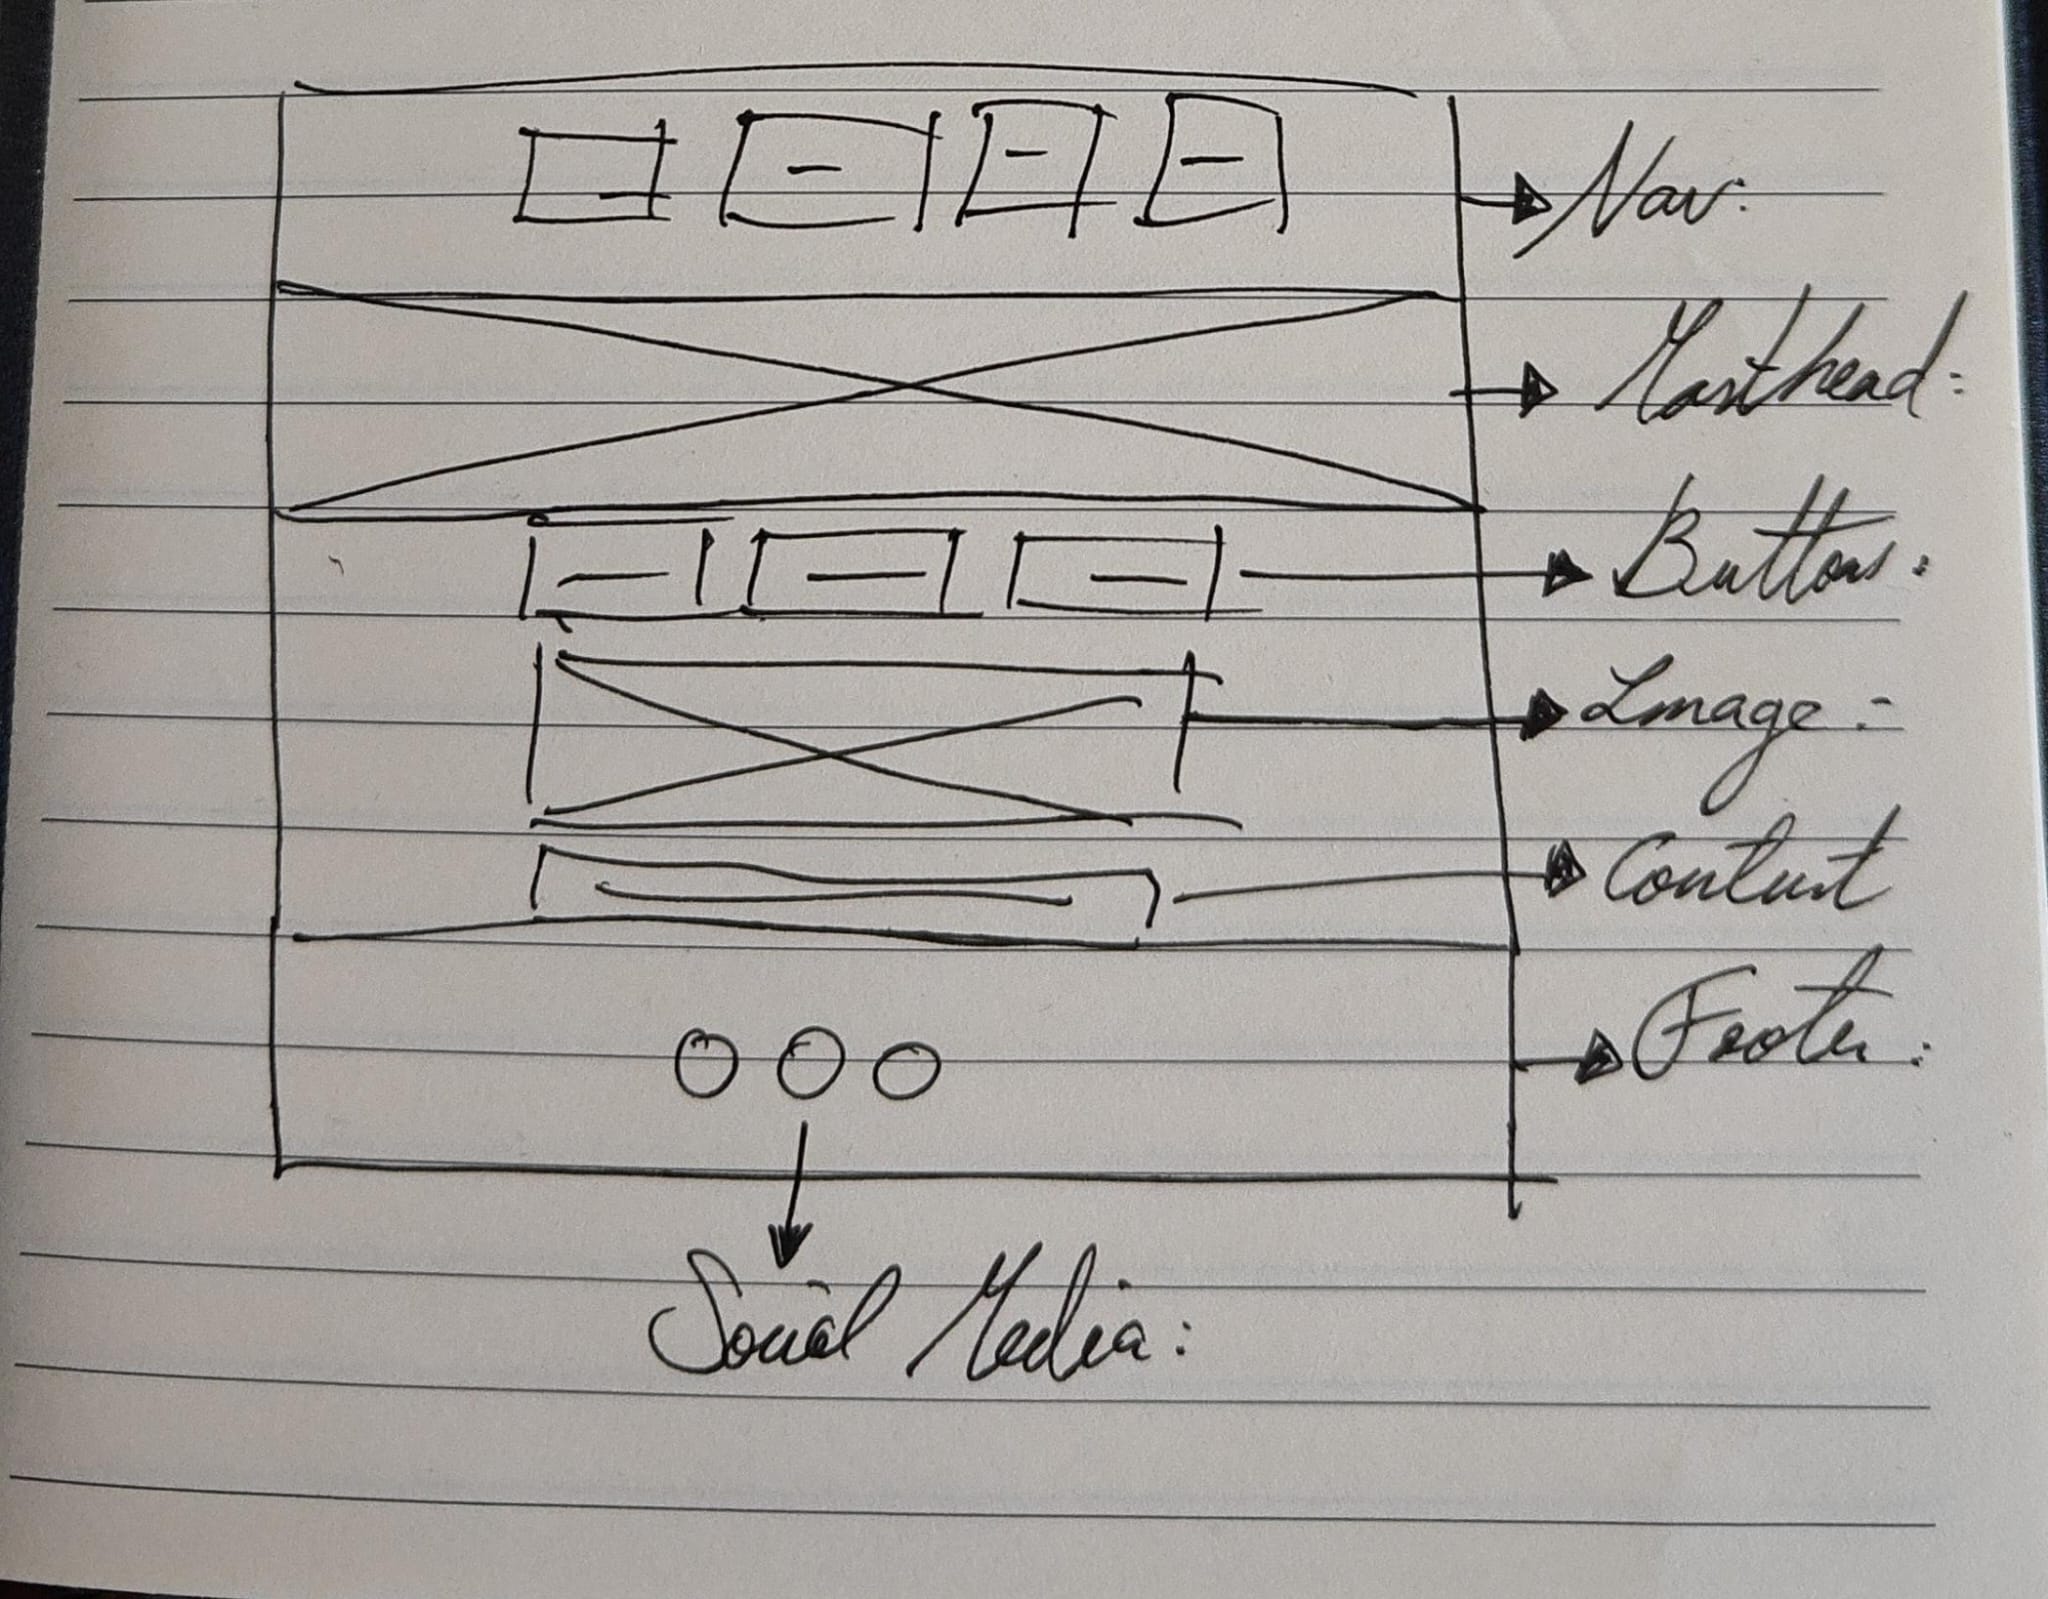 Nav:
Masthead:
Buttons:
Image:
Content
Footer:
Social Media: